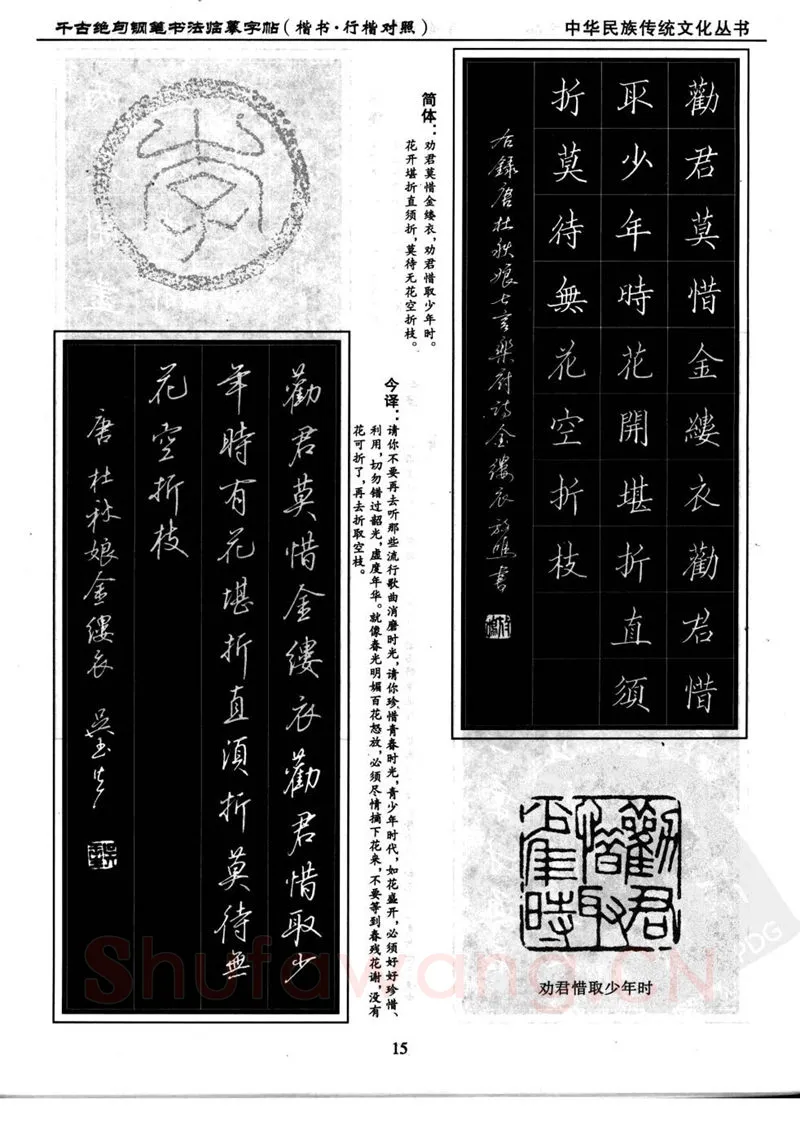 千古绝句钢笔书法临摹字帖（楷书·行楷对照）
中华民族传统文化丛书
勸君莫惜金縷衣勸君惜
取少年時花開堪折直須
折莫待無花空折枝
右錄唐杜秋娘七言樂府詩金縷衣 書
简体：劝君莫惜金缕衣，劝君惜取少年时。
花开堪折直须折，莫待无花空折枝。
今译：请你不要再去听那些流行歌曲消磨时光，请你珍惜青春时光，青少年时代，如花盛开，必须好好珍惜、
利用，切勿错过韶光，虚度年华。就像春光明媚百花怒放，必须尽情摘下花来，不要等到春残花谢，没有
花可折了，再去折取空枝。
勸君莫惜金縷衣勸君惜取少
年時有花堪折直須折莫待無
花空折枝
唐杜秋娘金縷衣 吴玉生
勸君
惜取
少年時
劝君惜取少年时
Shufawang.CN
PDG
15